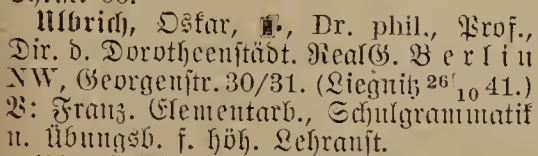 Ulbrich, Oskar, Dr. phil., Prof.,
Dir. d. Dorotheenstädt. RealG. Berlin
NW, Georgenstr. 30/31. (Liegnitz 26/10 41.)
V: Franz. Elementarb., Schulgrammatik
u. Übungsb. f. höh. Lehranst.